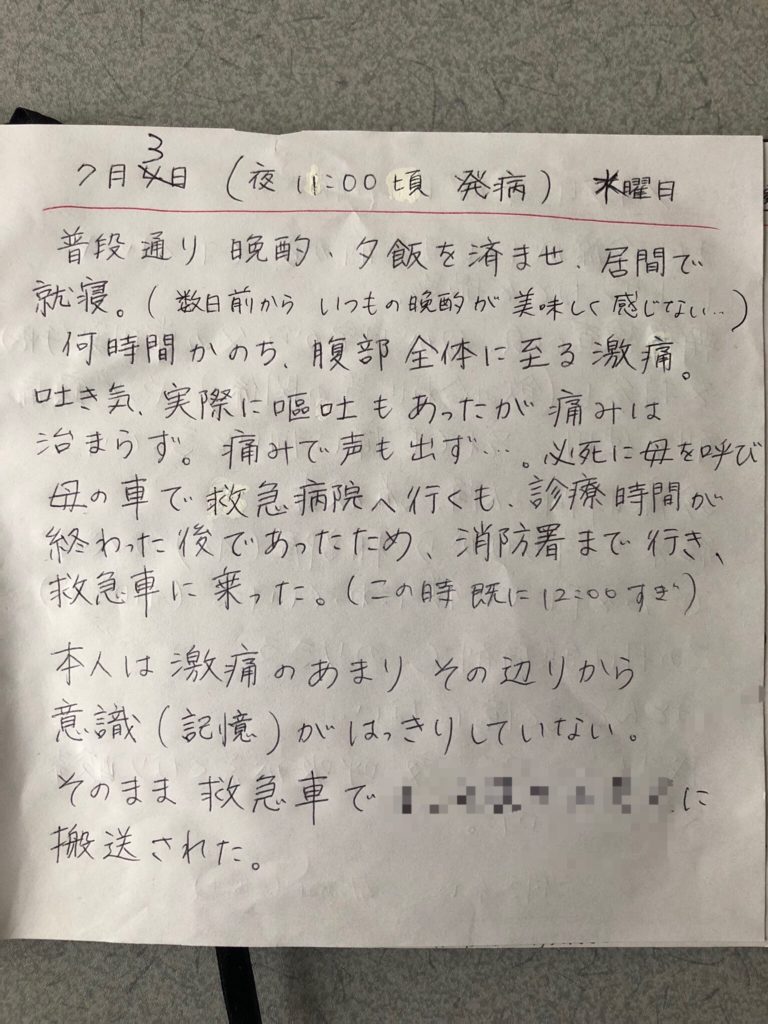 7月3日 (夜 11:00 頃 発病) 水曜日
普段通り 晩酌、夕飯を済ませ、居間で
就寝。(数日前から いつもの晩酌が 美味しく感じない…)
何時間かのち、腹部全体に至る激痛。
吐き気、実際に嘔吐もあったが 痛みは
治まらず。痛みで声も出ず…。必死に母を呼び
母の車で救急病院へ行くも、診療時間が
終わった後であったため、消防署まで行き、
救急車に乗った。(この時 既に12:00すぎ)
本人は激痛のあまり その辺りから
意識(記憶)がはっきりしていない。
そのまま 救急車で に
搬送された。